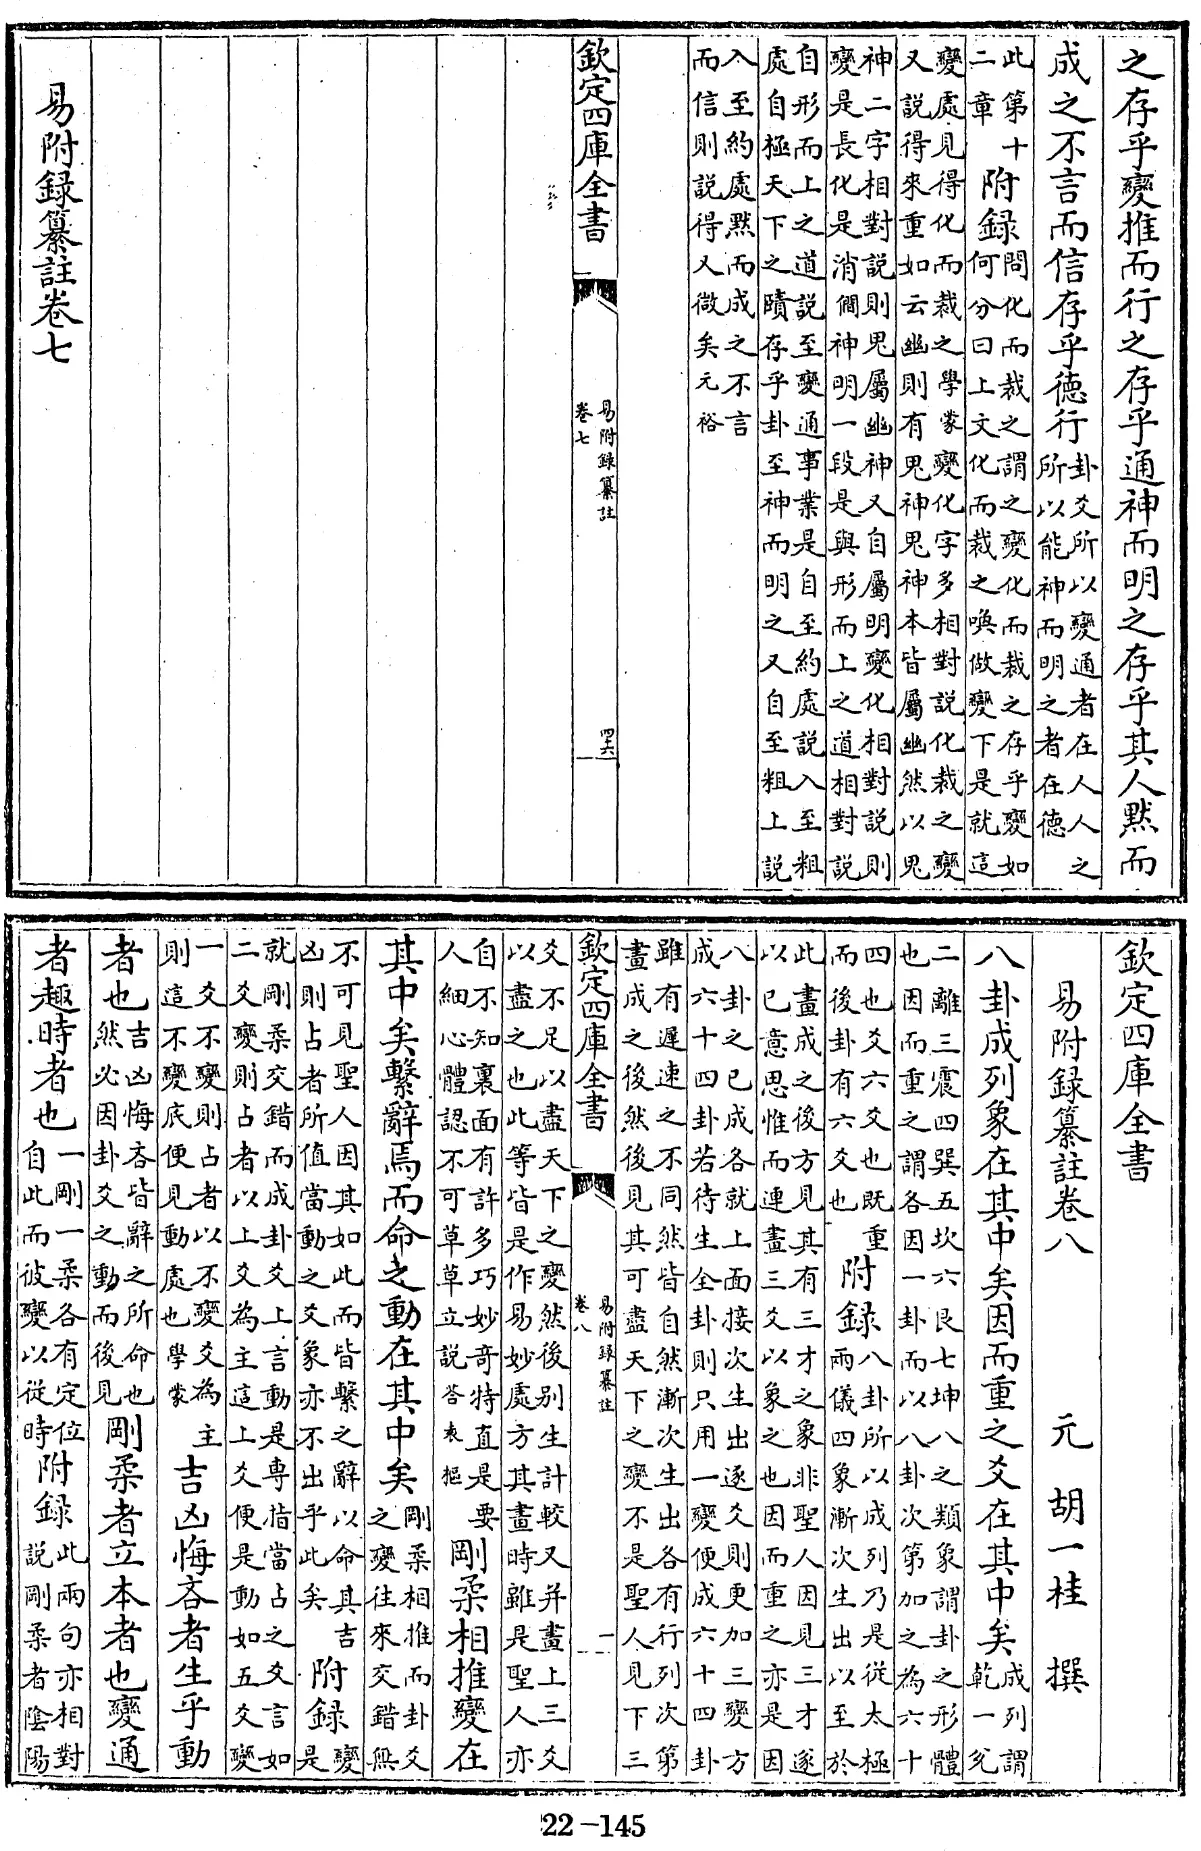 之存乎變推而行之存乎通神而明之存乎其人黙而
成之不言而信存乎徳行卦爻所以變通者在人人之所以能神而明之者在徳
此第十二章附録問化而裁之謂之變化而裁之存乎變如何分曰上文化而裁之喚做變下是就這
變處見得化而裁之學蒙變化字多相對説化裁之變又説得來重如云幽則有鬼神鬼神本皆屬幽然以鬼
神二字相對説則鬼屬幽神又自屬明變化相對説則變是長化是消僩神明一段是與形而上之道相對説
自形而上之道説至變通事業是自至約處説入至粗處自極天下之賾存乎卦至神而明之又自至粗上説
入至約處黙而成之不言而信則説得又微矣元裕
欽定四庫全書
易附録纂註
卷七
四六
易附録纂註卷七
欽定四庫全書
易附録纂註卷八 元 胡一桂 撰
八卦成列象在其中矣因而重之爻在其中矣成列謂乾一兌
二離三震四巽五坎六艮七坤八之類象謂卦之形體也因而重之謂各因一卦而以八卦次第加之為六十
四也爻六爻也既重而後卦有六爻也附録八卦所以成列乃是從太極兩儀四象漸次生出以至於
此畫成之後方見其有三才之象非聖人因見三才遂以已意思惟而連畫三爻以象之也因而重之亦是因
八卦之已成各就上面接次生出逐爻則更加三變方成六十四卦若待生全卦則只用一變便成六十四卦
雖有遲速之不同然皆自然漸次生出各有行列次第畫成之後然後見其可盡天下之變不是聖人見下三
欽定四庫全書
易附録纂註
卷八
一
爻不足以盡天下之變然後別生計較又并畫上三爻以盡之也此等皆是作易妙處方其畫時雖是聖人亦
自不知裏面有許多巧妙奇特直是要人細心體認不可草草立説答袁樞剛柔相推變在
其中矣繫辭焉而命之動在其中矣剛柔相推而卦爻之變往來交錯無
不可見聖人因其如此而皆繫之辭以命其吉凶則占者所值當動之爻象亦不出乎此矣附録變是
就剛柔交錯而成卦爻上言動是専指當占之爻言如二爻變則占者以上爻為主這上爻便是動如五爻變
一爻不變則占者以不變爻為主則這不變底便見動處也學蒙吉凶悔吝者生乎動
者也吉凶悔吝皆辭之所命也然必因卦爻之動而後見剛柔者立本者也變通
者趣時者也一剛一柔各有定位自此而彼變以從時附録此兩句亦相對説剛柔者陰陽
22-145